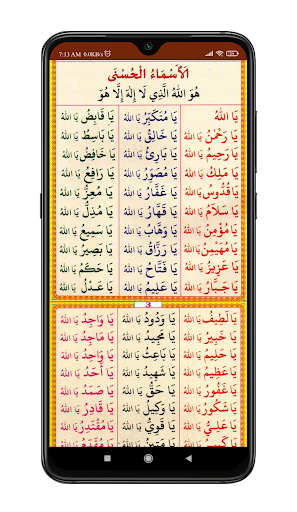 7:13 AM 0.0KB/s
اَلْأَسْمَاءُ الْحُسْنَى
هُوَ اللهُ الَّذِي لَا إِلٰهَ إِلَّا هُوَ
يَا اَللهُ
يَا رَحْمٰنُ يَا اَللهُ
يَا رَحِيمُ يَا اَللهُ
يَا مَلِكُ يَا اَللهُ
يَا قُدُّوسُ يَا اَللهُ
يَا سَلَامُ يَا اَللهُ
يَا مُؤْمِنُ يَا اَللهُ
يَا مُهَيْمِنُ يَا اَللهُ
يَا عَزِيزُ يَا اَللهُ
يَا جَبَّارُ يَا اَللهُ
يَا مُتَكَبِّرُ يَا اَللهُ
يَا خَالِقُ يَا اَللهُ
يَا بَارِئُ يَا اَللهُ
يَا مُصَوِّرُ يَا اَللهُ
يَا غَفَّارُ يَا اَللهُ
يَا قَهَّارُ يَا اَللهُ
يَا وَهَّابُ يَا اَللهُ
يَا رَزَّاقُ يَا اَللهُ
يَا فَتَّاحُ يَا اَللهُ
يَا عَلِيمُ يَا اَللهُ
يَا قَابِضُ يَا اَللهُ
يَا بَاسِطُ يَا اَللهُ
يَا خَافِضُ يَا اَللهُ
يَا رَافِعُ يَا اَللهُ
يَا مُعِزُّ يَا اَللهُ
يَا مُذِلُّ يَا اَللهُ
يَا سَمِيعُ يَا اَللهُ
يَا بَصِيرُ يَا اَللهُ
يَا حَكَمُ يَا اَللهُ
يَا عَدْلُ يَا اَللهُ
3
يَا لَطِيفُ يَا اَللهُ
يَا خَبِيرُ يَا اَللهُ
يَا حَلِيمُ يَا اَللهُ
يَا عَظِيمُ يَا اَللهُ
يَا غَفُورُ يَا اَللهُ
يَا شَكُورُ يَا اَللهُ
يَا عَلِيُّ يَا اَللهُ
يَا وَدُودُ يَا اَللهُ
يَا مَجِيدُ يَا اَللهُ
يَا بَاعِثُ يَا اَللهُ
يَا شَهِيدُ يَا اَللهُ
يَا حَقُّ يَا اَللهُ
يَا وَكِيلُ يَا اَللهُ
يَا قَوِيُّ يَا اَللهُ
يَا وَاجِدُ يَا اَللهُ
يَا مَاجِدُ يَا اَللهُ
يَا وَاحِدُ يَا اَللهُ
يَا أَحَدُ يَا اَللهُ
يَا صَمَدُ يَا اَللهُ
يَا قَادِرُ يَا اَللهُ
يَا مُقْتَدِرُ يَا اَللهُ